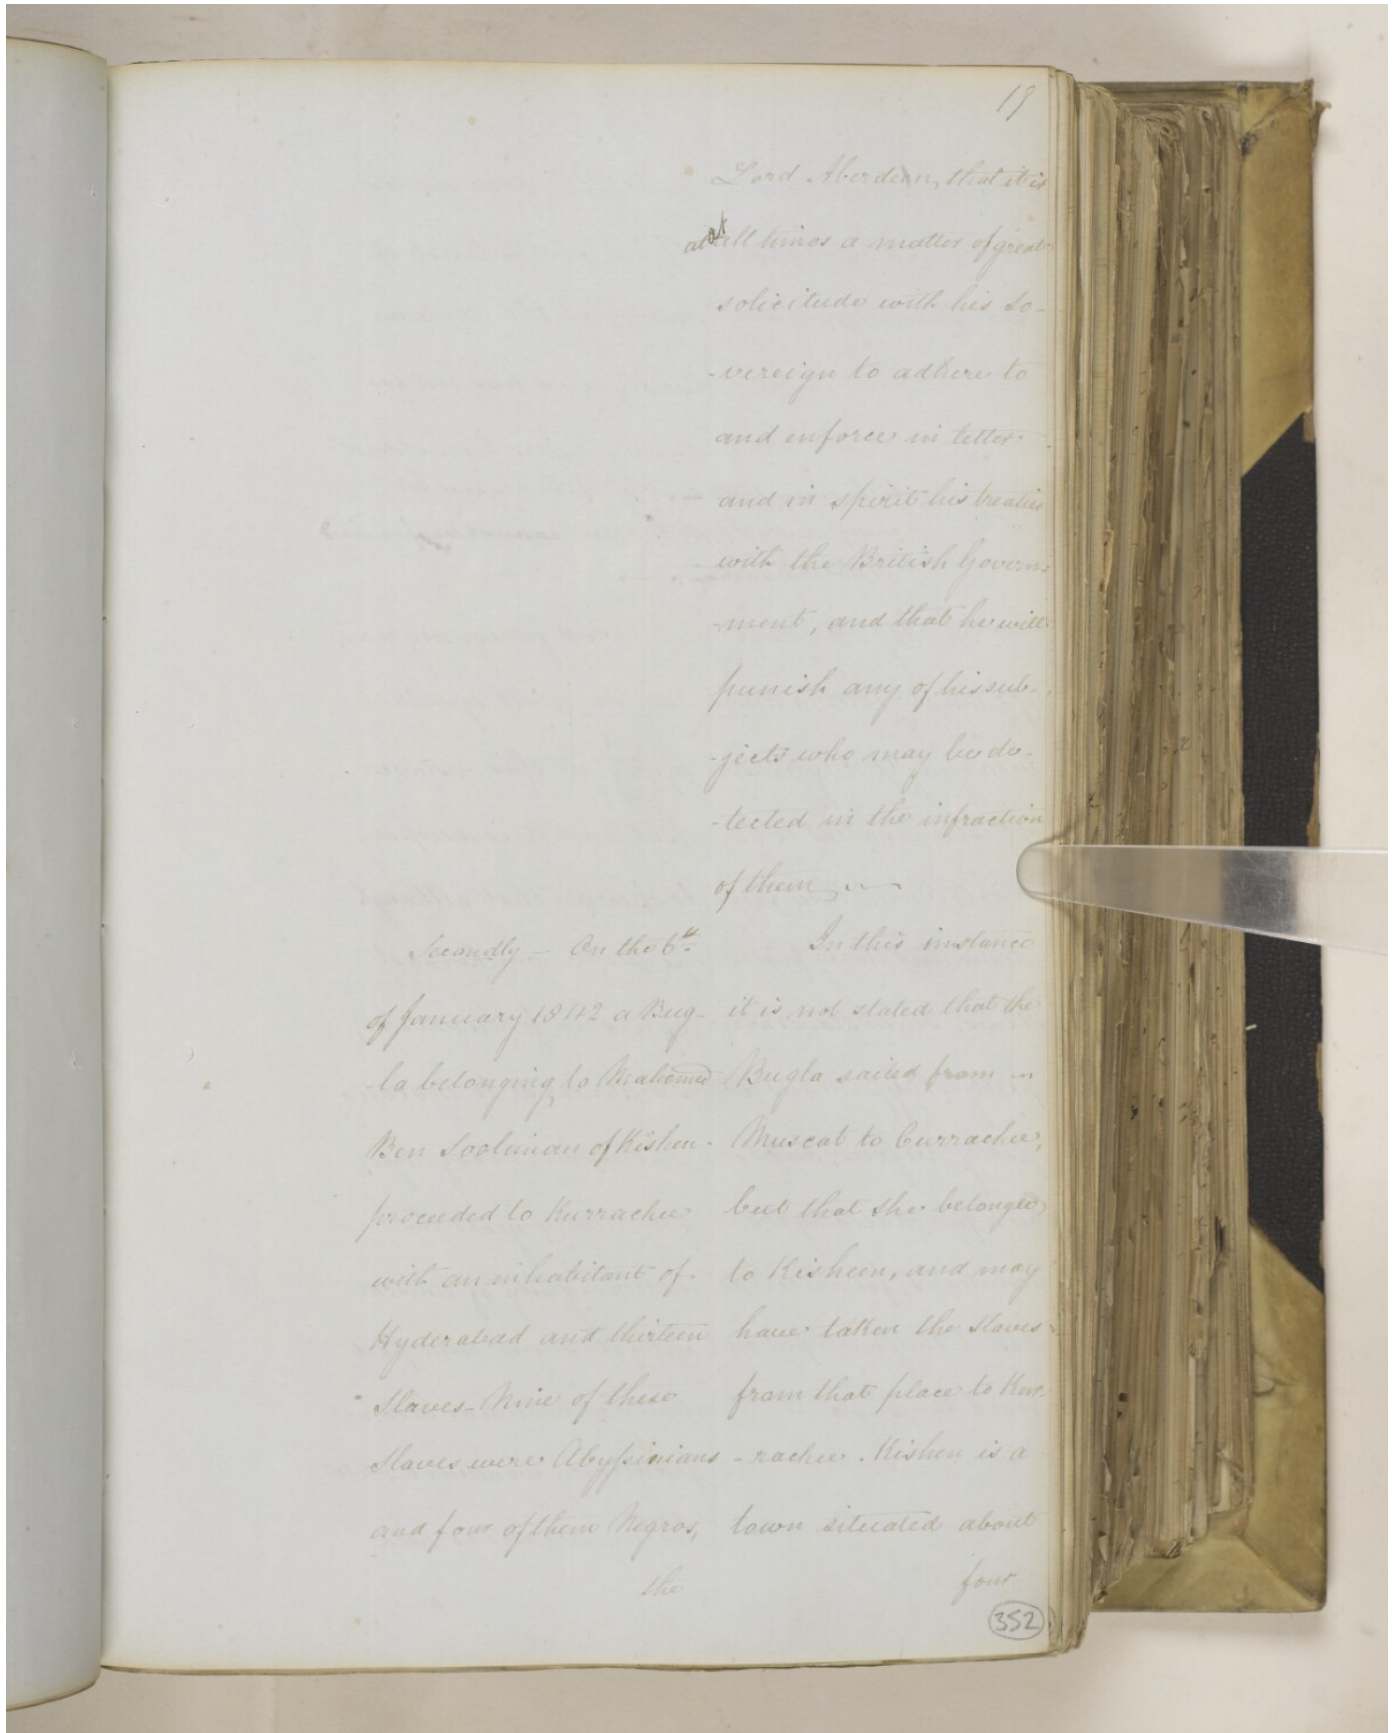 19
Lord Aberdeen, that it is
at all times a matter of great
solicitude with his So-
-vereign to adhere to
and enforce in letter
and in spirit his treaties
with the British Govern-
-ment, and that he will
punish any of his sub-
-jects who may be de-
-tected in the infraction
of them
Secondly - On the 6th
of January 1842 a Bug-
-la belonging to Mahomed
Ben Sooliman of Kishen
proceeded to Kurrachee
with an inhabitant of
Hyderabad and thirteen
Slaves - Nine of these
Slaves were Abyssinians
and four of them Negros,
the
In this instance
it is not stated that the
Bugla sailed from
Muscat to Currachee,
but that she belonged
to Kisheen, and may
have taken the Slaves
from that place to Kur-
-rachee. Kishen is a
town situated about
four
352